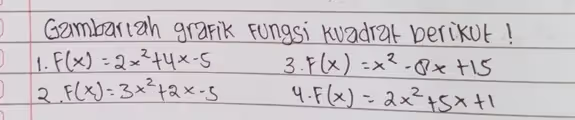 Gambarlah grafik fungsi kuadrat berikut !
1. F(x) = 2x²+4x-5 3. F(x) = x² -8x +15
2. F(x) = 3x²+2x-5 4. F(x) = 2x²+5x+1